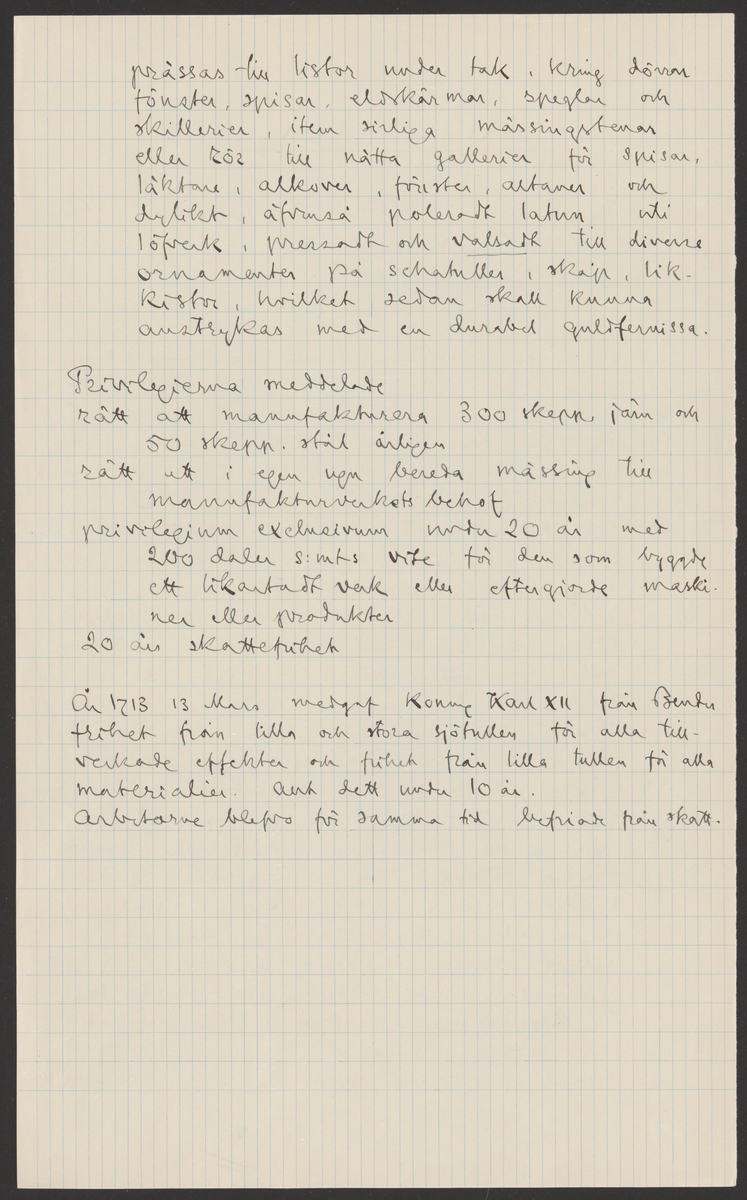 prässas till listor under tak, kring dörrar
fönster, spisar, eldskärmar, speglar och
skillerier, item sirliga mässingstenar
eller rör till nätta gallerier för spisar,
läktare, alkover, fönster, altaner och
dylikt, äfvenså poleradt latun uti
löfverk, pressadt och valsadt till diverse
ornamenter på schatuller, skåp, lik-
kistor, hvilket sedan skall kunna
anstrykas med en durabel guldfernissa.
Privilegierna meddelade
rätt att manufakturera 300 skepp. järn och
50 skepp. stål årligen
rätt att i egen ugn bereda mässing till
manufakturverkets behof
privilegium exclusivum under 20 år med
200 daler s:mts vite för den som byggde
ett likartadt verk eller eftergjorde maski-
ner eller produkter
20 års skattefrihet
År 1713 13 Mars medgaf Konung Karl XII från Bender
frihet från lilla och stora sjötullen för alla till-
verkade effekter och frihet från lilla tullen för alla
materialier. Allt dett under 10 år.
Arbetarne blefvo för samma tid befriade från skatt.